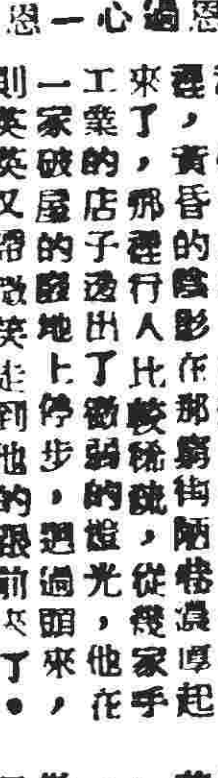 恩
過
心
一
恩
裡，黃昏的陰影在那窮街陋巷濃厚起
來了，那裡行人比較稀疏，從幾家手
工業的店子透出了微弱的燈光，他在
一家破屋的廢地上停步，迴過頭來，
則英英又帶微笑走到他的跟前來了。